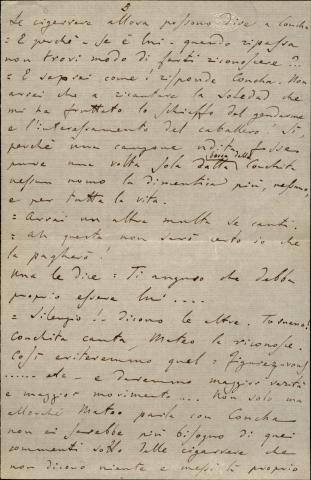 3
Le cigarrere allora possono dire a Concha
= E perché - se è lui - quando ripassa
non trovi modo di farti riconoscere?..
= E saprei come! risponde Concha. Non
avrei che a ricantare la Soledad che
mi ha fruttato lo schiaffo del gendarme
e l'interessamento del caballero! Sì,
perché una canzone udita, fosse
pure una volta sola dalla bocca della Conchita
nessun uomo la dimentica più, nessuno,
e per tutta la vita.
= Avrai un'altra multa se canti.
= Ah questa non sarò certo io che
la pagherò!
Una le dice = Ti auguro che debba
proprio essere lui ....
= Silenzio! - Dicono le altre.
Conchita canta, Mateo la riconosce.
Così eviteremmo quel = Figuriamoci
...... etc - e daremmo maggior verità
e maggior movimento ... Non solo ma
allorché Mateo parla con Concha
non vi sarebbe più bisogno di quei
commenti sotto delle cigarrere che
non dicono niente e messi lì proprio